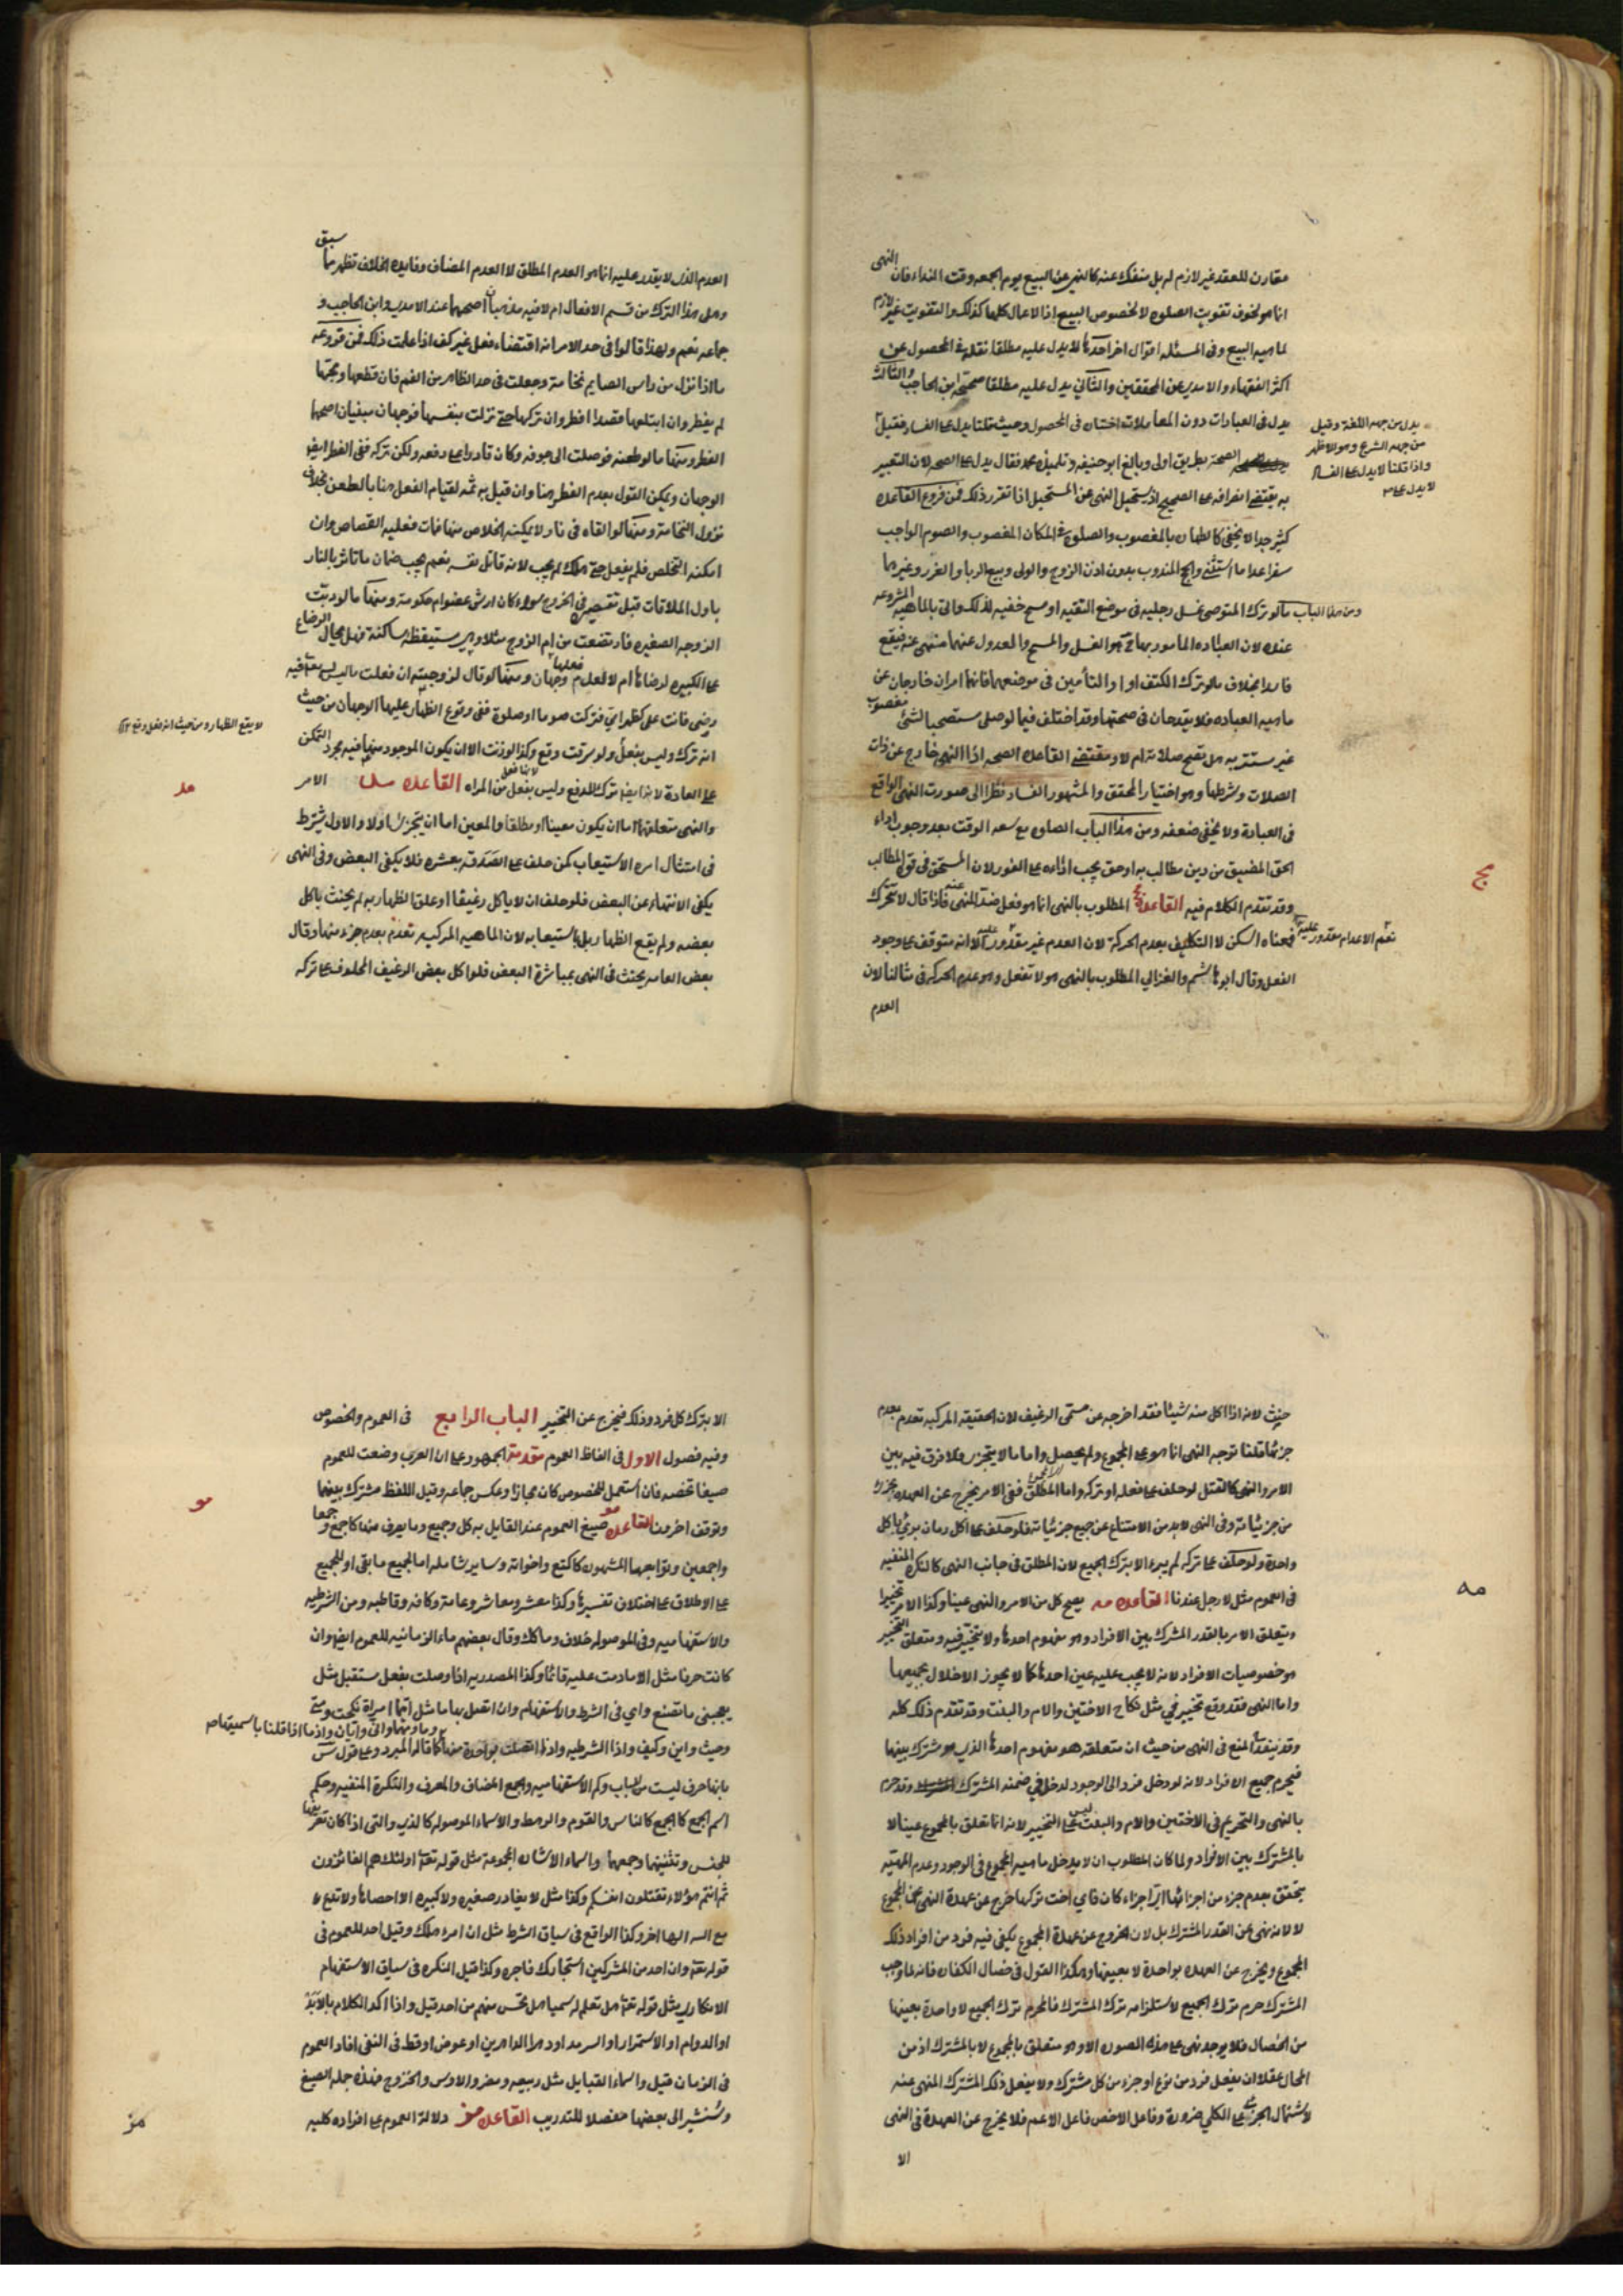 مقارن للعقد غير لازم له بل منفك عنه كالنهي عن البيع يوم الجمعه وقت النداء فان النهى
انما هو لخوف تفويت الصلوه لا لخصوص البيع اذا الاعمال كلها كذلك والتفويت غير لازم
لماهيه البيع وفى المسئله اقوال اخر احدها لا يدل عليه مطلقا نقله فى المحصول عن
اكثر الفقهاء والامدى عن المحققين والثانى يدل عليه مطلقا صححه ابن الحاجب والثالث
يدل فى العبادات دون المعاملات اختاره فى المحصول وحيث قلنا يدل على الفساد فقيل
يدل من جهه اللغة وقيل
من جهه الشرع وهو الاظهر
واذا قلنا لا يدل على الفساد
لا يدل على
الصحة بطريق اولى وبالغ ابو حنيفه وتلميذه محمد فقال يدل على الصحه لان التعبير
به يقتضى انصرافه الى الصحيح اذ يستحيل النهى عن المستحيل اذا تقرر ذلك فمن فروع القاعده
كثير جدا لا يخفى كالطهاره بالمغصوب والصلوة فى المكان المغصوب والصوم الواجب
سفرا عدا ما استثنى والحج المندوب بدون اذن الزوج والولى وبيع الربا والغرر وغيرها
ومن هذا الباب ما لو ترك المتوضى غسل رجليه فى موضع التقيه او مسح خفيه لذلك واتى بالماهيه المشروعه
عنده لان العباده المامور بها ح هو الغسل والمسح والمعدول عنهما منهى عنه فيقع
فاسدا بخلاف ما لو ترك الكتف او والتأمين فى موضعهما فانهما امران خارجان عن
ماهيه العباده فلا يقدحان فى صحتها وقد اختلف فيما لو صلى مستصحبا لشئ مغصوب
غير مستتر به هل تصح صلاته ام لا ومقتضى القاعده الصحه اذ النهى خارج عن ذات
الصلات وشرطها وهو اختيار المحقق والمشهور الفساد نظرا الى صورت النهى الواقع
فى العبادة ولا يخفى ضعفه ومن هذا الباب الصلوه مع سعه الوقت بعد وجوب اداء
الحق المضيق من دين مطالب به او حق يجب اداؤه على الفور لان المستحق فى قوة المطالب
وقد تقدم الكلام فيه القاعدة مج المطلوب بالنهى انما هو فعل ضد المنهى عنه فاذا قال لا تتحرك
مج
فمعناه اسكن لا التكليف بعدم الحركة لان العدم غير مقدور عليه لانه متوقف على وجود
نعم الاعدام مقدور عليه
الفعل وقال ابو هاشم والغزالي المطلوب بالنهى هو لا تفعل وهو عدم الحركه فى مثالنا لان
العدم
العدم الذى لا يقدر عليه انما هو العدم المطلق لا العدم المضاف وفايدة الخلاف تظهر بما سبق
وهل هذا الترك من قسم الافعال ام لا فيه مذهبان اصحهما عند الامدى وابن الحاجب و
جماعه نعم ولهذا قالوا فى حد الامر انه اقتضاء فعل غير كف اذا علمت ذلك فمن فروعه
ما اذا نزل من راس الصايم نخامة وجعلت فى حد الظاهر من الفم فان قطعها ومجها
لم يفطر وان ابتلعها قصدا افطر وان تركها حتى نزلت بنفسها فوجهان مبنيان اصحهما
الفطر ومنها ما لو طعنه فوصلت الى جوفه وكان قادرا على دفعه ولكن تركه ففى الفطر ايض
الوجهان ويمكن القول بعدم الفطر هنا وان قيل به ثمه لقيام الفعل هنا بالطاعن بخلاف
نزول النخامة ومنها لو القاه فى نار لا يمكنه الخلاص منها فمات فعليه القصاص وان
امكنه التخلص فلم يفعل حتى هلك لم يجب لانه قاتل نفسه نعم يجب ضمان ما تاثر بالنار
باول الملاقات قبل تقصيره فى الخروج سواء كان ارش عضو ام حكومة ومنها ما لو دبّت
الزوجه الصغيره فارتضعت من ام الزوج مثلا وهى مستيقظه ساكتة فهل يحال الرضاع
على الكبيره لرضاها ام لا لعدم فعلها وجهان ومنها لو قال لزوجته ان فعلت ما ليس لله تعالى فيه
رضى فانت على كظهر امى فتركت صوما او صلوة ففى وقوع الظهار عليها الوجهان من حيث
لا يقع الظهار ومن حيث انه فعل وقع
انه ترك وليس بفعل ولو سرقت وقع وكذا لو زنت الا ان يكون الموجود منها فيه مجرد التمكن
على العادة لانه ايضا ترك للدفع وليس بفعل من المراه القاعده مد الامر
مد
والنهى متعلقهما اما ان يكون معينا او مطلقا والمعين اما ان يتجزى او لا والاول يشترط
فى امتثال امره الاستيعاب كمن حلف على الصدقه بعشره فلا يكفى البعض وفى النهى
يكفى الانتهاء عن البعض فلو حلف ان لا ياكل رغيفا او علق الظهار به لم يحنث باكل
بعضه ولم يقع الظهار بل باستيعابه لان الماهيه المركبه تعدم بعدم جزء منها وقال
بعض العامه يحنث فى النهى بمباشرة البعض فلو اكل بعض الرغيف المحلوف على تركه
حنث لانه اذا اكل منه شيئا فقد اخرجه عن مسمى الرغيف لان الحقيقه المركبه تعدم بعدم
جزئها قلنا توجه النهى انما هو على المجموع ولم يحصل واما ما لا يتجزى فلا فرق فيه بين
الامر والنهى كالقتل لو حلف على فعله او تركه واما المطلق ففى الامر يخرج عن العهده بجزئى
من جزئياته وفى النهى لابد من الامتناع عن جميع جزئياته فلو حلف على اكل رمان برئ باكل
واحدة ولو حلف على تركه لم يبرء الا بترك الجميع لان المطلق فى جانب النهى كالنكره المنفيه
فى العموم مثل لا رجل عندنا القاعده مه يصح كل من الامر والنهى عينا وكذا الامر تخييرا
مه
ويتعلق الامر بالقدر المشترك بين الافراد وهو مفهوم احدها ولا تخيير فيه ومتعلق التخيير
هو خصوصيات الافراد لانه لا يجب عليه عين احدها كما لا يجوز الاخلال بجميعها
واما النهى فقد وقع تخيير فى مثل نكاح الاختين والام والبنت وقد تقدم ذلك كله
وقد ينقدح المنع فى النهى من حيث ان متعلقه هو مفهوم احدها الذى هو مشترك بينها
فيحرم جميع الافراد لانه لو دخل فرد الى الوجود لدخل فى ضمنه المشترك وقد حرم
بالنهى والتحريم فى الاختين والام والبنت ليس على التخيير لانه انما تعلق بالمجموع عينا لا
بالمشترك بين الافراد ولما كان المطلوب ان لا يدخل ماهيه المجموع فى الوجود وعدم الماهيه
يتحقق بعدم جزء من اجزائها اى اجزاء كان فاى اخت تركها خرج عن عهدة النهى عن المجموع
لا لانه نهى عن القدر المشترك بل لان الخروج عن عهدة المجموع يكفى فيه فرد من افراد ذلك
المجموع ويخرج عن العهده بواحدة لا بعينها وهكذا القول فى خصال الكفاره فانه لما وجب
المشترك حرم ترك الجميع لاستلزامه ترك المشترك فالمحرم ترك الجميع لا واحدة بعينها
من الخصال فلا يوجد نهى على هذه الصوره الا وهو متعلق بالمجموع لا بالمشترك اذ من
المحال عقلا ان يفعل فرد من نوع او جزء من كل مشترك ولا يفعل ذلك المشترك المنهى عنه
لاشتمال الجزئى على الكلي ضرورة وفاعل الاخص فاعل الاعم فلا يخرج عن العهدة فى النهى
الا
الا بترك كل فرد وذلك يخرج عن التخيير الباب الرابع فى العموم والخصوص
وفيه فصول الاول فى الفاظ العموم مقدمة الجمهور على ان العرب وضعت للعموم
صيغا تخصه فان استعمل للخصوص كان مجازا وعكس جماعه وقيل اللفظ مشترك بينهما
مو
وتوقف اخرون القاعده مو صيغ العموم عند القايل به كل وجميع وما يعرف منها كاجمع وجمعا
واجمعين وتوابعها المشهوره كاكتع واخواته وساير شامله اما لجميع ما بقى او للجميع
على الاطلاق على اختلاف تفسيرها وكذا معشر ومعاشر وعامة وكافه وقاطبه ومن الشرطيه
والاستفهاميه وفى الموصوله خلاف وما كلك وقال بعضهم ماء الزمانيه للعموم ايض وان
كانت حرفا مثل الا ما دمت عليه قائما وكذا المصدريه اذا وصلت بفعل مستقبل مثل
يعجبنى ما تصنع واي فى الشرط والاستفهام وان اتصل بها ما مثل ايما امراة نكحت ومتى
وحيث واين وكيف واذا الشرطيه واذا اتصلت بواحدة منها ما كما قاله المبرد وعلى قول س
بانها حرف ليست من الباب وكم الاستفهاميه والجمع المضاف والمعرف والنكرة المنفيه وحكم
اسم الجمع كالجمع كالناس والقوم والرهط والاسماء الموصوله كالذى والتى اذا كان تعريفها
للجنس وتثنيتها وجمعها واسماء الاشاره المجموعة مثل قوله تعالى اولئك هم الفائزون
ثم انتم هؤلاء تقتلون انفسكم وكذا مثل لا يغادر صغيره ولا كبيره الا احصاها ولا تدع
مع الله الها اخر وكذا الواقع فى سياق الشرط مثل ان امرء هلك وقيل احد للعموم فى
قوله تعالى وان احد من المشركين استجارك فاجره وكذا قيل النكره فى سياق الاستفهام
الانكارى مثل قوله تعالى هل تعلم له سميا هل تحس منهم من احد قيل واذا اكد الكلام بالابد
او الدوام او الاستمرار او السرمد او دهر الداهرين او عوض او قط فى النفى افاد العموم
فى الزمان قيل واسماء القبايل مثل ربيعه ومضر والاوس والخزرج فهذه جمله الصيغ
وسنشير الى بعضها مفصلا للتدريب القاعده مز دلالة العموم على افراده كليه
مز